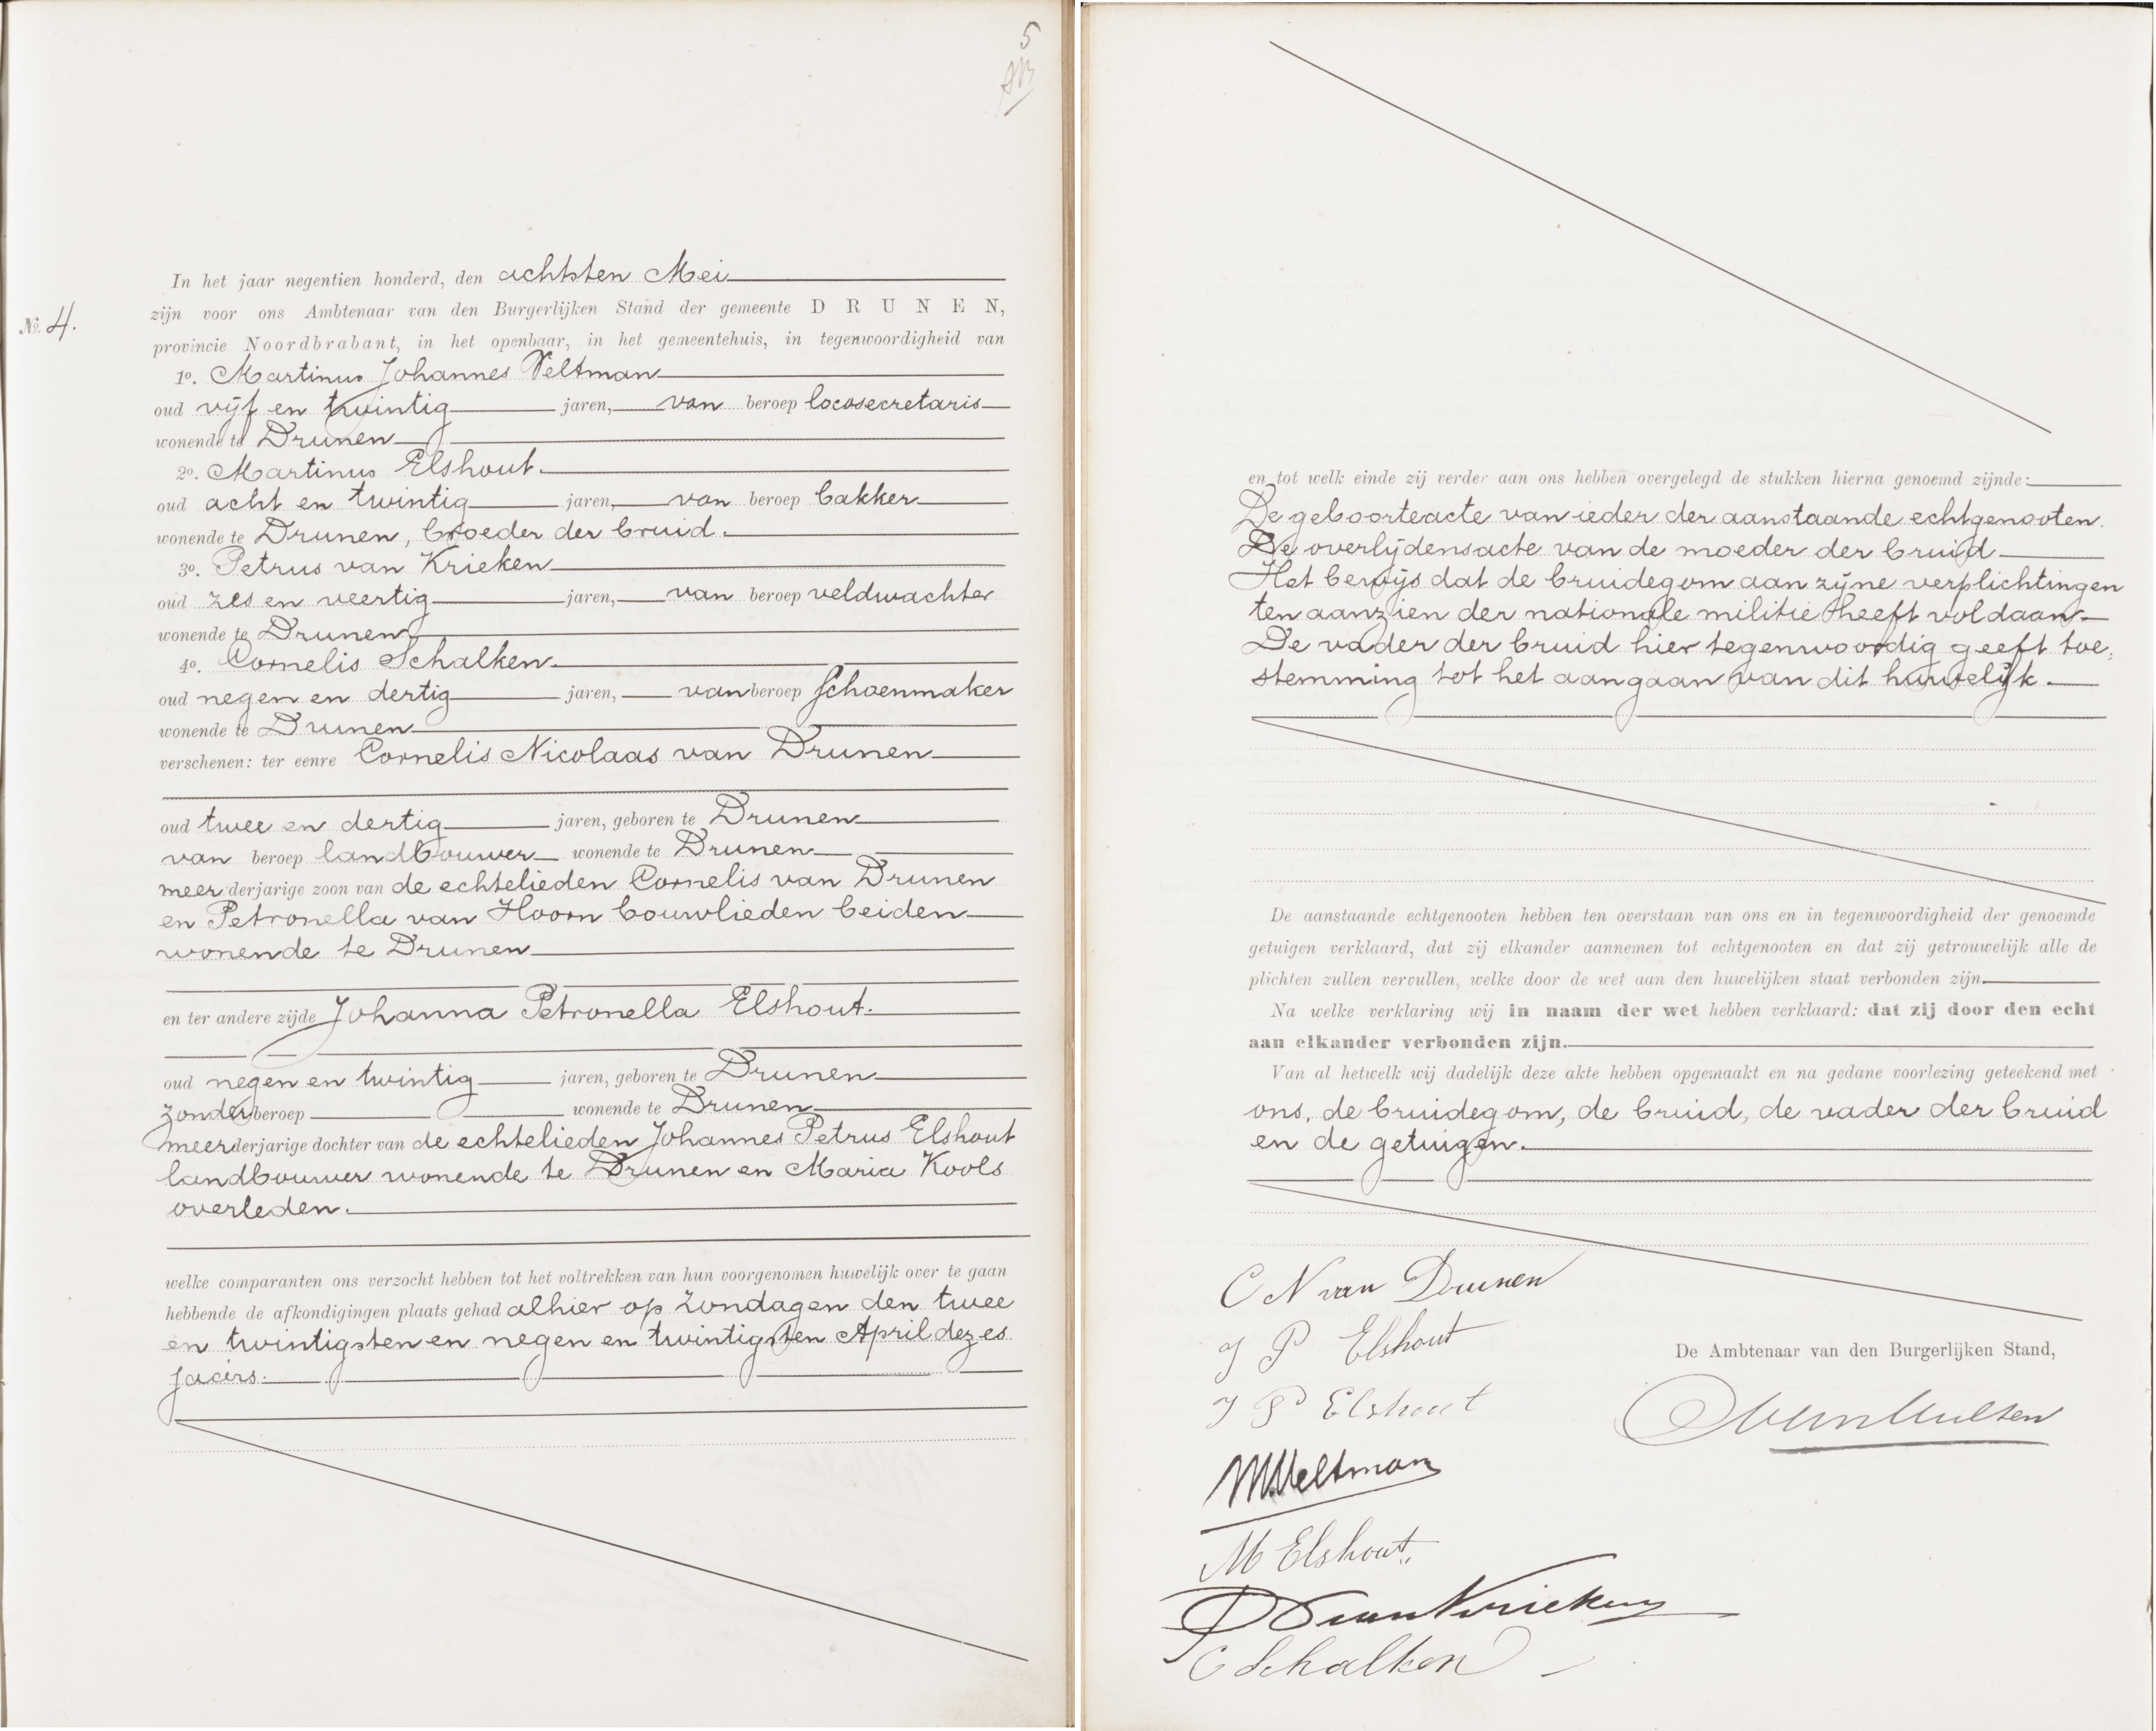 5
No. 4.
In het jaar negentien honderd, den achtsten Mei
zijn voor ons Ambtenaar van den Burgerlijken Stand der gemeente DRUNEN,
provincie Noordbrabant, in het openbaar, in het gemeentehuis, in tegenwoordigheid van
1o. Martinus Johannes Veltman
oud vijf en twintig jaren, van beroep locosecretaris
wonende te Drunen
2o. Martinus Elshout.
oud acht en twintig jaren, van beroep bakker
wonende te Drunen, broeder der bruid.
3o. Petrus van Krieken
oud zes en veertig jaren, van beroep veldwachter
wonende te Drunen
4o. Cornelis Schalken.
oud negen en dertig jaren, van beroep schoenmaker
wonende te Drunen
verschenen: ter eenre Cornelis Nicolaas van Drunen
oud twee en dertig jaren, geboren te Drunen
van beroep landbouwer wonende te Drunen
meerderjarige zoon van de echtelieden Cornelis van Drunen
en Petronella van Hoorn bouwlieden beiden
wonende te Drunen
en ter andere zijde Johanna Petronella Elshout.
oud negen en twintig jaren, geboren te Drunen
zonder beroep wonende te Drunen
meerderjarige dochter van de echtelieden Johannes Petrus Elshout
landbouwer wonende te Drunen en Maria Kools
overleden.
welke comparanten ons verzocht hebben tot het voltrekken van hun voorgenomen huwelijk over te gaan
hebbende de afkondigingen plaats gehad alhier op Zondagen den twee
en twintigsten en negen en twintigsten April dezes
jaars.
en tot welk einde zij verder aan ons hebben overgelegd de stukken hierna genoemd zijnde:
De geboorteacte van ieder der aanstaande echtgenooten.
De overlijdensacte van de moeder der bruid
Het bewijs dat de bruidegom aan zijne verplichtingen
ten aanzien der nationale militie heeft voldaan.
De vader der bruid hier tegenwoordig geeft toe:
stemming tot het aangaan van dit huwelijk.
De aanstaande echtgenooten hebben ten overstaan van ons en in tegenwoordigheid der genoemde
getuigen verklaard, dat zij elkander aannemen tot echtgenooten en dat zij getrouwelijk alle de
plichten zullen vervullen, welke door de wet aan den huwelijken staat verbonden zijn.
Na welke verklaring wij in naam der wet hebben verklaard: dat zij door den echt
aan elkander verbonden zijn.
Van al hetwelk wij dadelijk deze akte hebben opgemaakt en na gedane voorlezing geteekend met
ons, de bruidegom, de bruid, de vader der bruid
en de getuigen.
C N van Drunen
J P Elshout
De Ambtenaar van den Burgerlijken Stand,
J P Elshout
M Veltman
M Elshout
P van Krieken
C Schalken